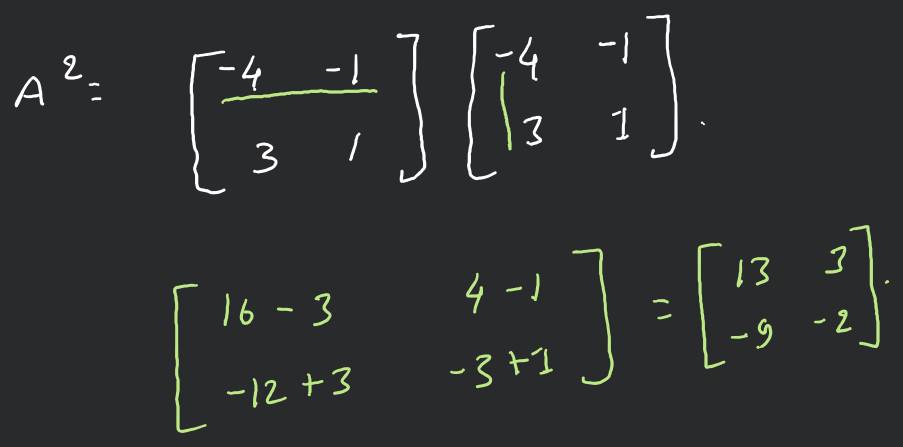 A² = [ -4 -1 ] [ -4 -1 ]
3 1 3 1 .
[ 16 - 3 4 - 1 ] = [ 13 3 ] .
-12 + 3 -3 + 1 -9 -2